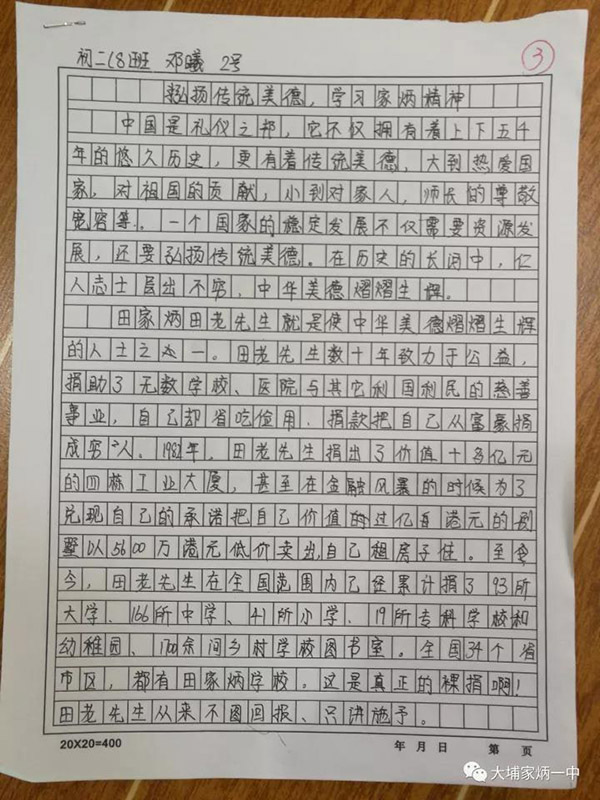 初二(8)班 邓曦 2号
3
弘扬传统美德，学习家炳精神
中国是礼仪之邦，它不仅拥有着上下五千
年的悠久历史，更有着传统美德，大到热爱国
家，对祖国的贡献，小到对家人，师长的尊敬
宽容等。一个国家的稳定发展不仅需要资源发
展，还要弘扬传统美德。在历史的长河中，仁
人志士层出不穷，中华美德熠熠生辉。
田家炳田老先生就是使中华美德熠熠生辉
的人士之一。田老先生数十年致力于公益，
捐助了无数学校、医院与其它利国利民的慈善
事业，自己却省吃俭用，捐款把自己从富豪捐
成穷人。1982年，田老先生捐出了价值十多亿元
的四栋工业大厦，甚至在金融风暴的时候为了
兑现自己的承诺把自己价值的过亿港元的别
墅以5600万港元低价卖出，自己租房子住。至
今，田老先生在全国范围内已经累计捐了93所
大学、166所中学、41所小学、19所专科学校和
幼稚园、1700余间乡村学校图书室。全国34个省
市区，都有田家炳学校。这是真正的裸捐啊！
田老先生从来不图回报、只讲施予。
20X20=400
年 月 日 第 页
大埔家炳一中